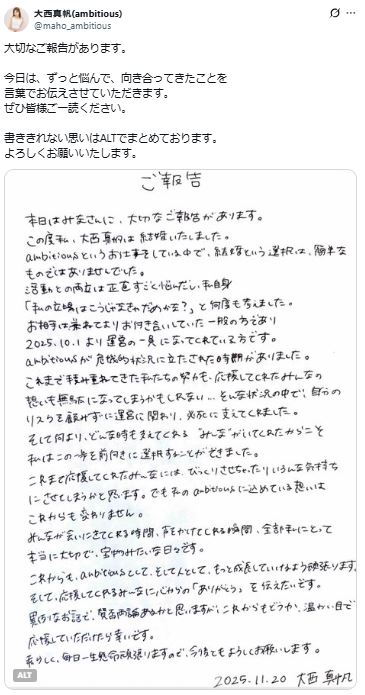 大西真帆(ambitious)
@maho_ambitious
大切なご報告があります。
今日は、ずっと悩んで、向き合ってきたことを
言葉でお伝えさせていただきます。
ぜひ皆様ご一読ください。
書ききれない思いはALTでまとめております。
よろしくお願いいたします。
ご報告
本日はみなさんに、大切なご報告があります。
この度私、大西真帆は結婚いたしました。
ambitiousというお仕事をしている中で、結婚という選択は、簡単な
ものではありませんでした。
活動との両立は正直すごく悩んだし、私自身
「私の立場はこうじゃなきゃだめかな？」と何度も考えました。
お相手は兼ねてよりお付き合いしていた一般の方であり
2025.10.1より運営の一員になってくれている方です。
ambitiousが危機的状況に立たされた時期がありました。
これまで積み重ねてきた私たちの努力も、応援してくれたみんなの
想いも無駄になってしまうかもしれない…そんな状況の中で、自分の
リスクを顧みずに運営に関わり、必死に支えてくれました。
そして何より、どんな時も支えてくれる"みんな"がいてくれたからこそ
私はこの一歩を前向きに選択することができました。
これまで応援してくれたみんなには、びっくりさせちゃったりいろんな気持ち
にさせてしまうかと思います。でも私のambitiousに込めている想いは
これからも変わりません。
みんなが会いにきてくれる時間、声をかけてくれる瞬間、全部私にとって
本当に大切で、宝物みたいな日々です。
これからも、ambitiousとして、そして人として、もっと成長していけるよう頑張ります。
そして、応援してくれるみんなに心からの「ありがとう」を伝えたいです。
異例なお話で、賛否両論あるかと思いますが、これからもどうか、温かい目で
応援していただけたら幸いです。
らしく、毎日一生懸命頑張りますので、今後ともよろしくお願いします。
2025.11.20 大西真帆
ALT